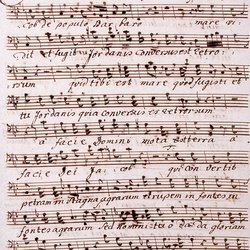 cob de populo Bar baro mare vi
dit et fugit Jordanis conversus est retror
sum quid tibi est mare quod fugisti et
tu Jordanis quia conversus es retrorsum
a facie Domini mota est terra a
facie Dei Ja cob qui con vertit
petram in stagna aquarum et rupem in fontes in
fontes aquarum sed nomini tuo da gloriam